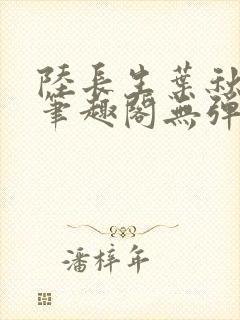 陸長生葉秋
筆趣閣無彈
潘梓年